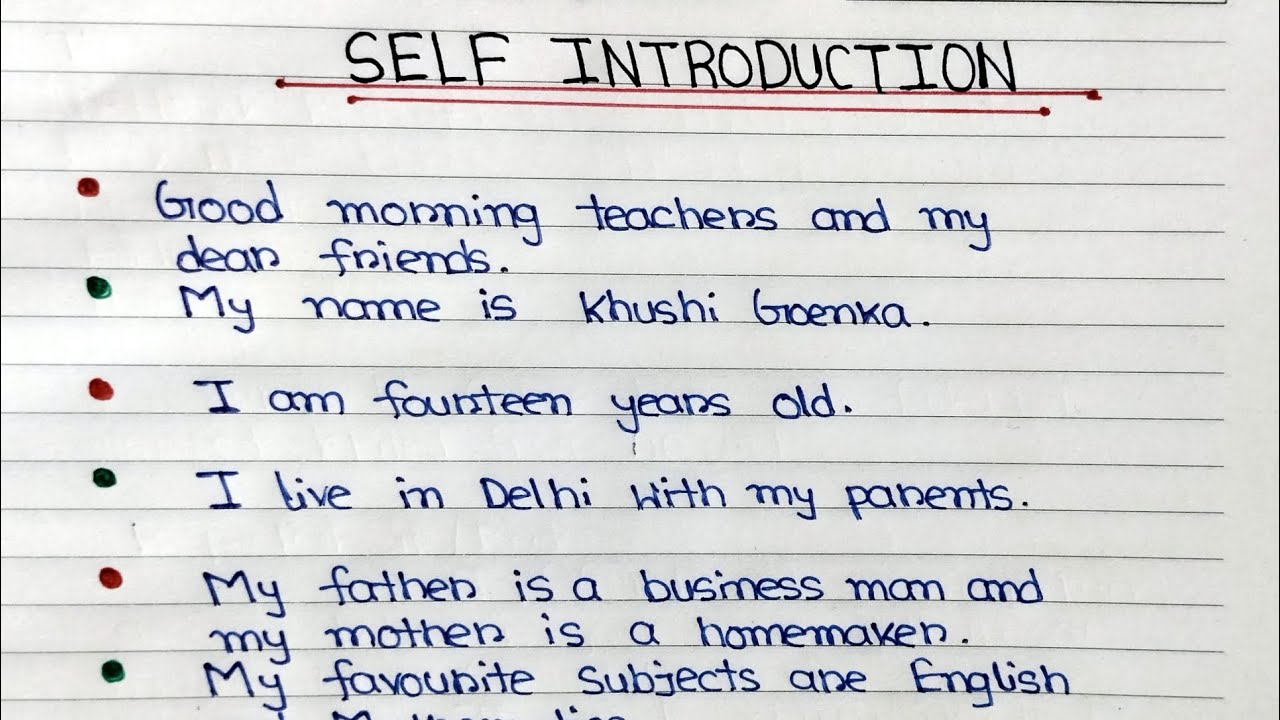 SELF INTRODUCTION
Good morning teachers and my
dear friends.
My name is Khushi Goenka.
I am fourteen years old.
I live in Delhi with my parents.
My father is a business man and
my mother is a homemaker.
My favourite subjects are English